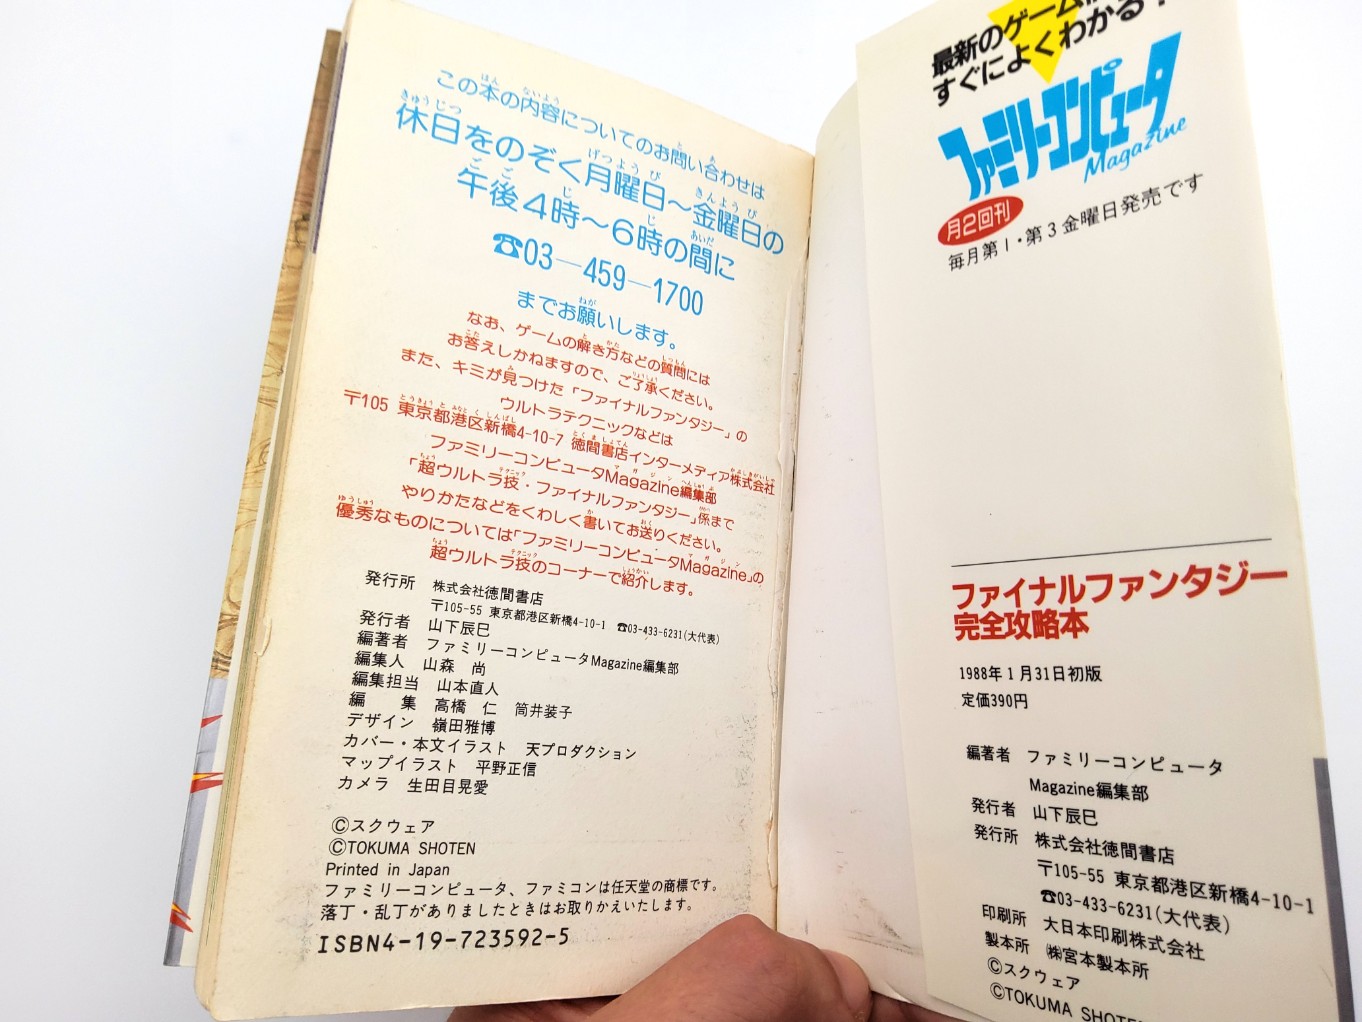 この本の内容についてのお問い合わせは
休日をのぞく月曜日〜金曜日の
午後4時〜6時の間に
☎03―459―1700
までお願いします。
なお、ゲームの解き方などの質問には
お答えしかねますので、ご了承ください。
また、キミが見つけた「ファイナルファンタジー」の
ウルトラテクニックなどは
〒105 東京都港区新橋4-10-7 徳間書店インターメディア株式会社
ファミリーコンピュータMagazine編集部
「超ウルトラ技・ファイナルファンタジー」係まで
やりかたなどをくわしく書いてお送りください。
優秀なものについては「ファミリーコンピュータMagazine」の
超ウルトラ技のコーナーで紹介します。
発行所 株式会社徳間書店
〒105-55 東京都港区新橋4-10-1 ☎03-433-6231(大代表)
発行者 山下辰巳
編著者 ファミリーコンピュータMagazine編集部
編集人 山森 尚
編集担当 山本直人
編 集 高橋 仁 筒井装子
デザイン 嶺田雅博
カバー・本文イラスト 天プロダクション
マップイラスト 平野正信
カメラ 生田目晃愛
©スクウェア
©TOKUMA SHOTEN
Printed in Japan
ファミリーコンピュータ、ファミコンは任天堂の商標です。
落丁・乱丁がありましたときはお取りかえいたします。
ISBN4-19-723592-5
最新のゲーム
すぐによくわかる!
ファミリーコンピュータ
Magazine
月2回刊
毎月第1・第3金曜日発売です
ファイナルファンタジー
完全攻略本
1988年1月31日初版
定価390円
編著者 ファミリーコンピュータ
Magazine編集部
発行者 山下辰巳
発行所 株式会社徳間書店
〒105-55 東京都港区新橋4-10-1
☎03-433-6231(大代表)
印刷所 大日本印刷株式会社
製本所 ㈱宮本製本所
©スクウェア
©TOKUMA SHOTEN